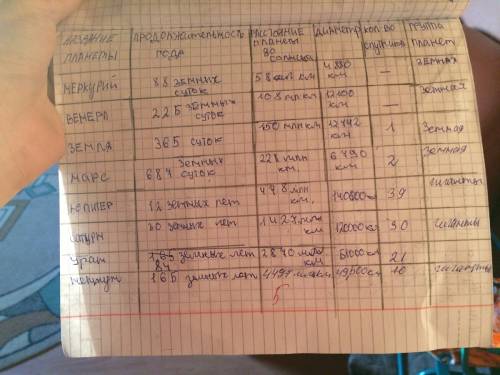 НАЗВАНИЕ ПЛАНЕТЫ ПРОДОЛЖИТЕЛЬНОСТЬ ГОДА РАССТОЯНИЕ ПЛАНЕТЫ ДО СОЛНЦА ДИАМЕТР КОЛ-ВО СПУТНИКОВ ГРУППА ПЛАНЕТ
МЕРКУРИЙ 88 земных суток 58 млн км км — земная
ВЕНЕРА 225 земных суток 108 млн км 12100 км — земная
ЗЕМЛЯ 365 суток 150 млн км 12742 км 1 Земная
МАРС 687 земных суток 228 млн км, 6790 км 2 Земная
ЮПИТЕР 12 земных лет 778 млн км, 39 гиганты
Сатурн 30 земных лет 1427 млн км 30 гиганты
Уран 84 земных лет 2870 млн км 51000 км 21
Нептун 165 земных лет 4497 млн км 10 гиганты
5